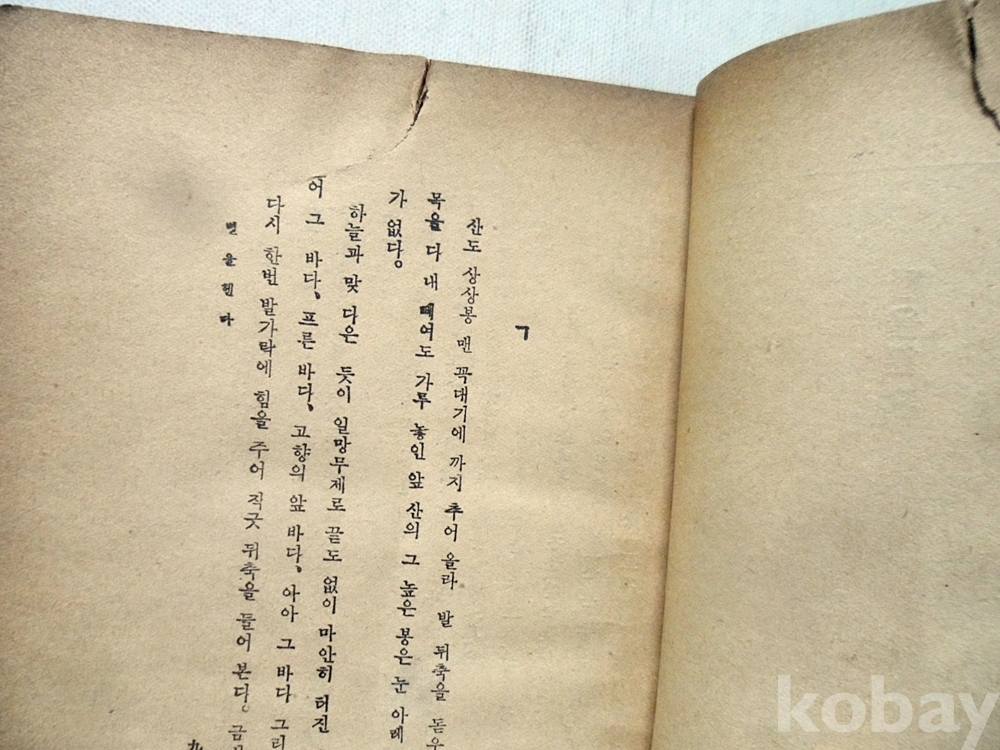 ㄱ
산도 상상봉 맨 꼭대기에 까지 추어 올라 발 뒤축을 돋우
목을 다 내 빼여도 가루 놓인 앞 산의 그 높은 봉은 눈 아레
가 없다。
하늘과 맞 다은 듯이 일망무제로 끝도 없이 마안히 터진
어 그 바다、프른 바다、고향의 앞 바다、아아 그 바다 그리
다시 한번 발가락에 힘을 주어 직긋 뒤축을 들어 본다。금
별을헨다
九
kobay